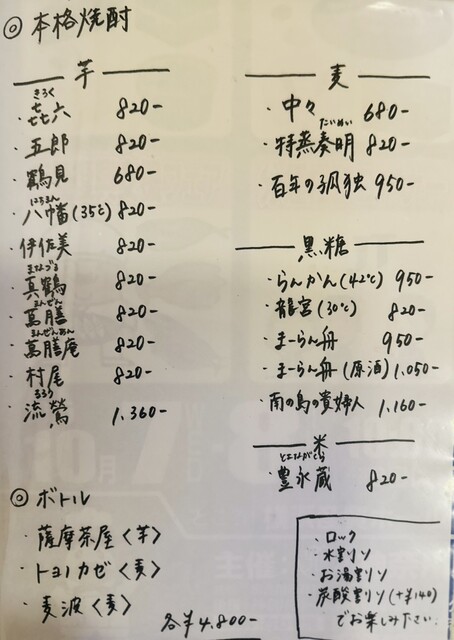 ◎ 本格焼酎
芋
きろく
㐂六 820-
五郎 820-
鶴見 680-
はちまん
八幡(35℃) 820-
伊佐美 820-
まなづる
真鶴 820-
まんぜん
萬膳 820-
まんぜんあん
萬膳庵 820-
村尾 820-
るろう
流鶯 1,360-
麦
・中々 680-
たいめい
・特蒸泰明 820-
・百年の孤独 950-
黒糖
・らんかん(42℃) 950-
・龍宮(30℃) 820-
・まーらん舟 950-
・まーらん舟(原酒) 1,050-
・南の島の貴婦人 1,160-
米
とよながくら
・豊永蔵 820-
◎ ボトル
・薩摩茶屋〈芋〉
・トヨノカゼ〈麦〉
・麦波〈麦〉
各¥4,800-
・ロック
・水割り
・お湯割り
・炭酸割り(+¥140)
でお楽しみださい.